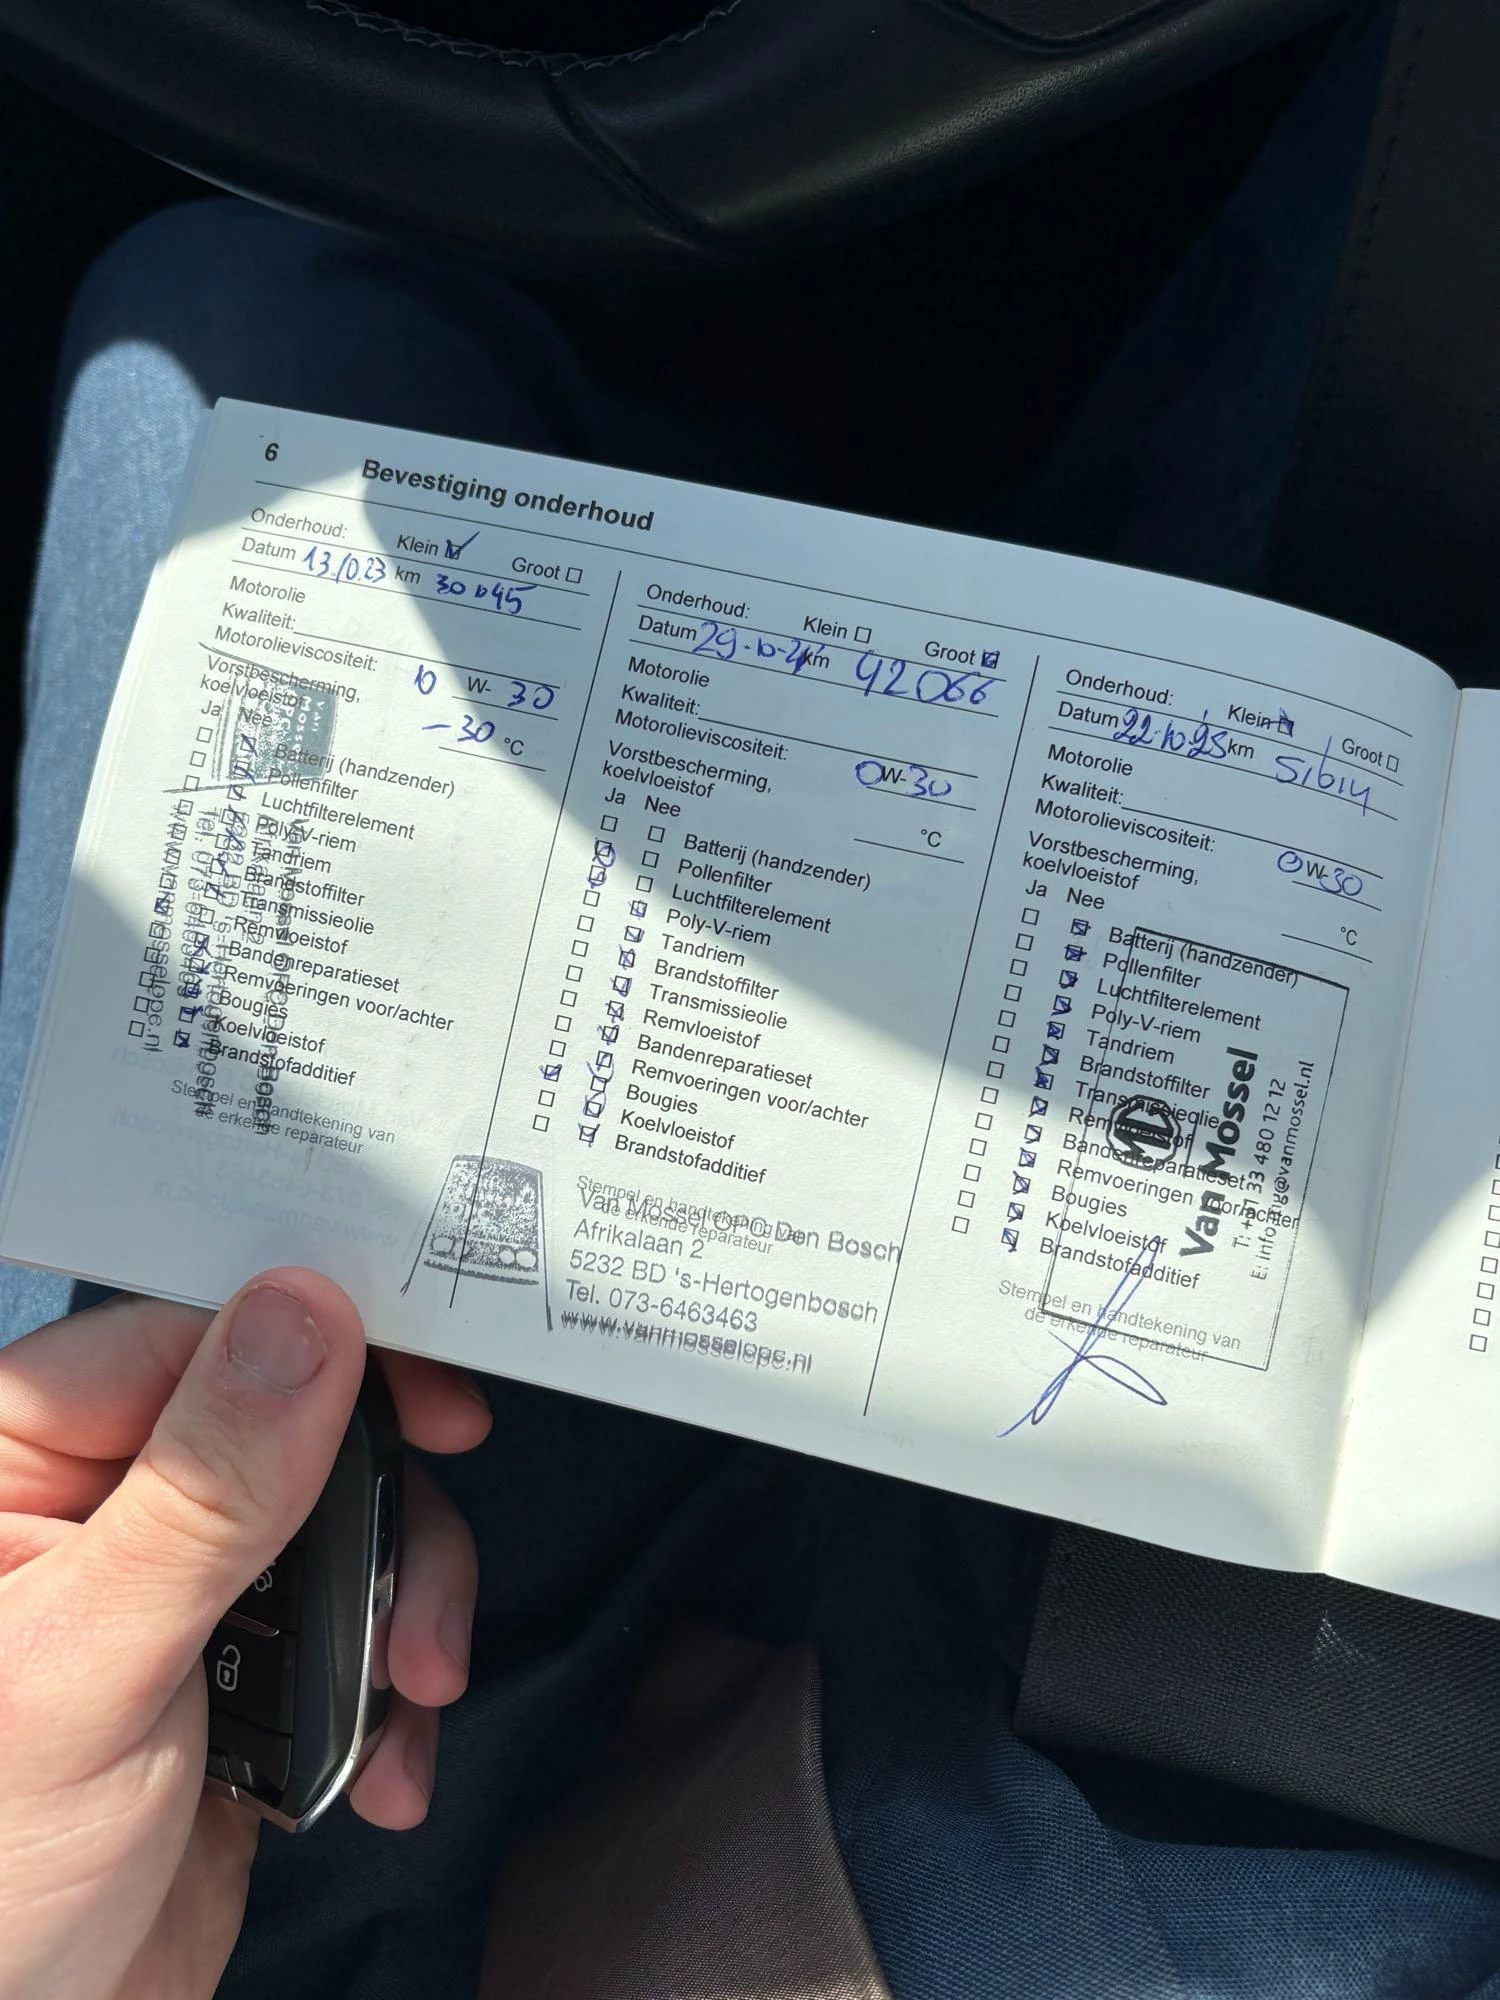 6 Bevestiging onderhoud
Onderhoud: Klein Groot
Datum 13.10.23 km 30045
Motorolie
Kwaliteit:
Motorolieviscositeit: 0 W- 30
Vorstbescherming,
koelvloeistof -30 °C
Ja Nee
Batterij (handzender)
Pollenfilter
Luchtfilterelement
Poly-V-riem
Tandriem
Brandstoffilter
Transmissieolie
Remvloeistof
Bandenreparatieset
Remvoeringen voor/achter
Bougies
Koelvloeistof
Brandstofadditief
Stempel en handtekening van
de erkende reparateur
Onderhoud: Klein Groot
Datum 29-10-24 km 42066
Motorolie
Kwaliteit:
Motorolieviscositeit: 0W-30
Vorstbescherming,
koelvloeistof °C
Ja Nee
Batterij (handzender)
Pollenfilter
Luchtfilterelement
Poly-V-riem
Tandriem
Brandstoffilter
Transmissieolie
Remvloeistof
Bandenreparatieset
Remvoeringen voor/achter
Bougies
Koelvloeistof
Brandstofadditief
Stempel en handtekening van
de erkende reparateur
Van Mossel OPC Den Bosch
Afrikalaan 2
5232 BD 's-Hertogenbosch
Tel. 073-6463463
www.vanmosselopc.nl
Onderhoud: Klein Groot
Datum 22-10-25 km 51614
Motorolie
Kwaliteit:
Motorolieviscositeit: 0W-30
Vorstbescherming,
koelvloeistof °C
Ja Nee
Batterij (handzender)
Pollenfilter
Luchtfilterelement
Poly-V-riem
Tandriem
Brandstoffilter
Transmissieolie
Remvloeistof
Bandenreparatieset
Remvoeringen voor/achter
Bougies
Koelvloeistof
Brandstofadditief
Stempel en handtekening van
de erkende reparateur
MG
Van Mossel
T: +31 33 480 12 12